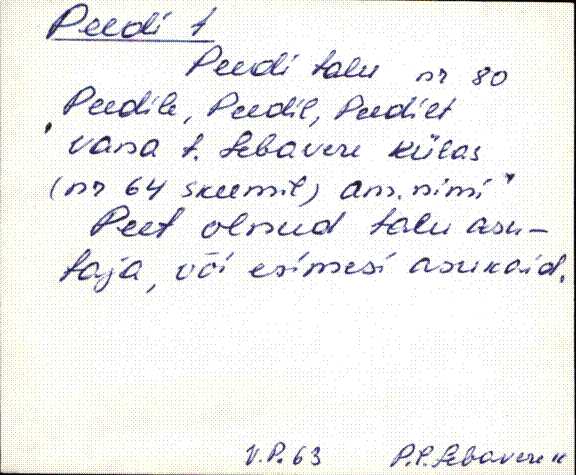 Peedi t
Peedi talu nr 80
Peedile, Peedil, Peedilt
vana t. Lebavere külas
(nr 64 skeemil) am. nimi"
Peet olnud talu asu-
taja, või esimesi asukaid.
V.P. 63 P.P. Lebavere k